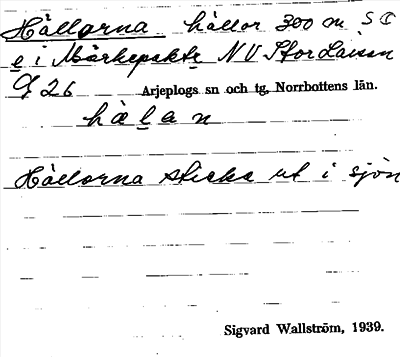 Hällorna hällor 300 m S o
e i Märkepakte NV Stor Laisan
G 26 Arjeplogs sn och tg, Norrbottens län.
hälan
Hällorna sticka ut i sjön
Sigvard Wallström, 1939.